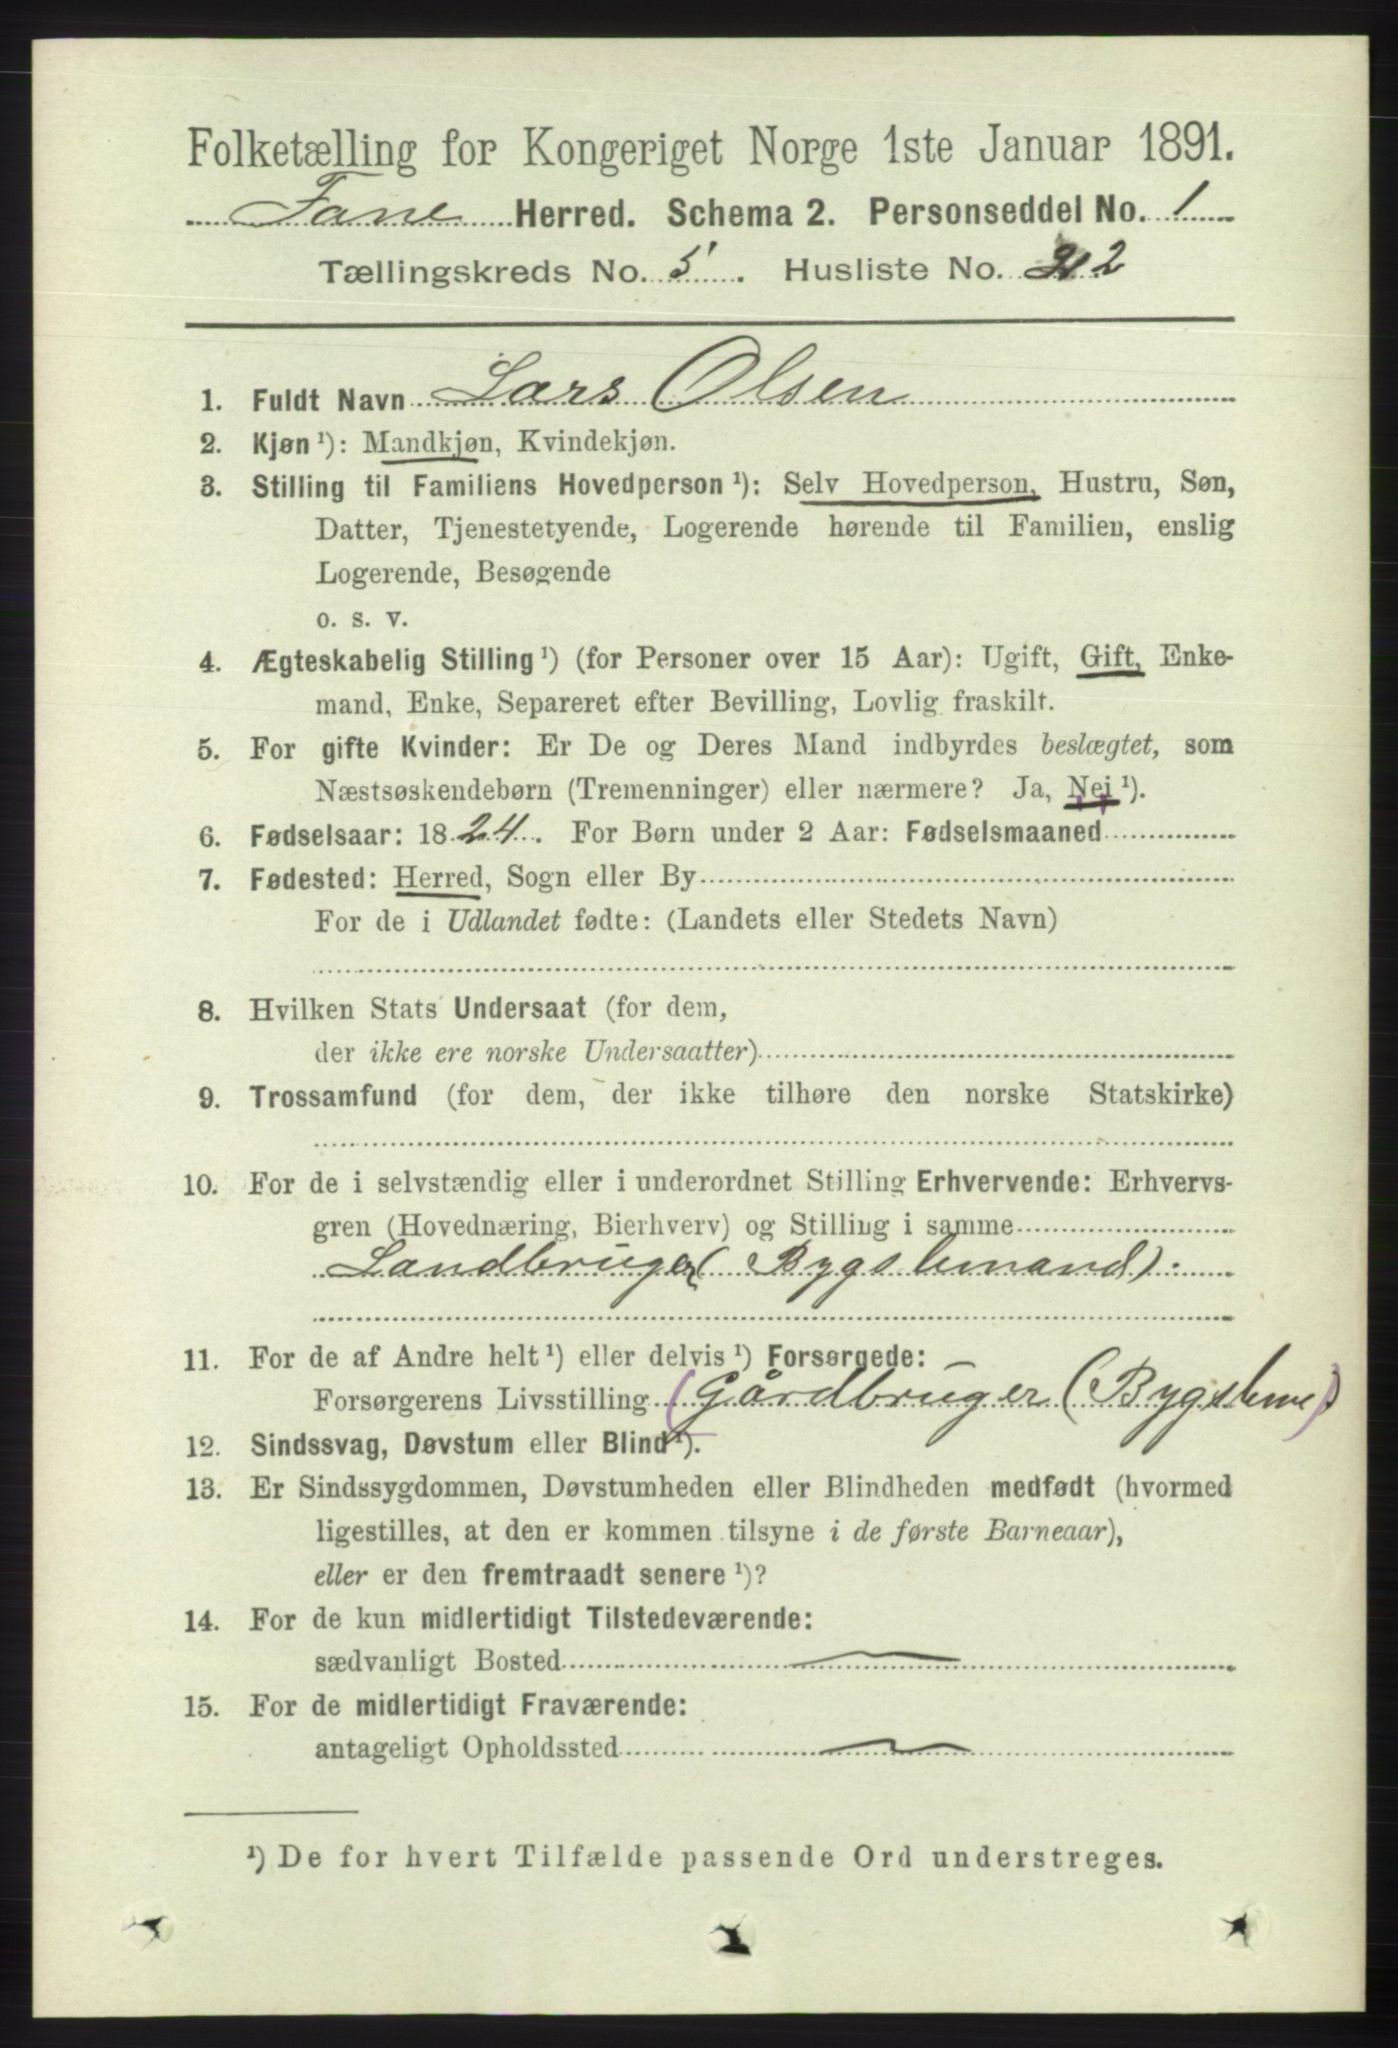 Folketælling for Kongeriget Norge 1ste Januar 1891.
Fane Herred. Schema 2. Personseddel No. 1
Tællingskreds No. 5. Husliste No. 2
1. Fuldt Navn Lars Olsen
2. Kjøn ¹): Mandkjøn, Kvindekjøn.
3. Stilling til Familiens Hovedperson ¹): Selv Hovedperson, Hustru, Søn,
Datter, Tjenestetyende, Logerende hørende til Familien, enslig
Logerende, Besøgende
o. s. v.
4. Ægteskabelig Stilling ¹) (for Personer over 15 Aar): Ugift, Gift, Enke-
mand, Enke, Separeret efter Bevilling, Lovlig fraskilt.
5. For gifte Kvinder: Er De og Deres Mand indbyrdes beslægtet, som
Næstsøskendebørn (Tremenninger) eller nærmere? Ja, Nei ¹).
6. Fødselsaar: 1824. For Børn under 2 Aar: Fødselsmaaned
7. Fødested: Herred, Sogn eller By
For de i Udlandet fødte: (Landets eller Stedets Navn)
8. Hvilken Stats Undersaat (for dem,
der ikke ere norske Undersaatter)
9. Trossamfund (for dem, der ikke tilhøre den norske Statskirke)
10. For de i selvstændig eller i underordnet Stilling Erhvervende: Erhvervs-
gren (Hovednæring, Bierhverv) og Stilling i samme
Landbruger (Bygslemand).
11. For de af Andre helt ¹) eller delvis ¹) Forsørgede:
Forsørgerens Livsstilling (Gårdbruger (Bygslem)
12. Sindssvag, Døvstum eller Blind ¹).
13. Er Sindssygdommen, Døvstumheden eller Blindheden medfødt (hvormed
ligestilles, at den er kommen tilsyne i de første Barneaar),
eller er den fremtraadt senere ¹)?
14. For de kun midlertidigt Tilstedeværende:
sædvanligt Bosted
15. For de midlertidigt Fraværende:
antageligt Opholdssted
¹) De for hvert Tilfælde passende Ord understreges.